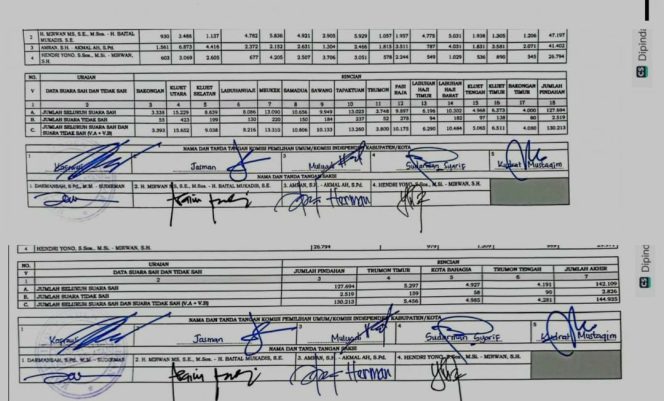 2 H. MIRWAN MS, S.E., M.Sos. - H. BAITAL MUKADIS, S.E. 930 3.488 1.137 4.782 5.836 4.921 2.905 5.929 1.057 1.937 4.775 5.031 1.938 1.305 1.206 47.197
3 AMRAN, S.H. - AKMAL AH, S.Pd. 1.561 6.873 4.416 2.372 2.152 2.631 1.304 2.466 1.815 3.511 787 4.031 1.831 3.581 2.071 41.402
4 HENDRI YONO, S.Sos., M.Si. - MIRWAN, S.H. 603 3.069 2.605 677 4.205 2.507 3.706 3.051 578 2.244 549 1.029 536 890 545 26.794
NO. URAIAN RINCIAN
V DATA SUARA SAH DAN TIDAK SAH BAKONGAN KLUET UTARA KLUET SELATAN LABUHANHAJI MEUKEK SAMADUA SAWANG TAPAKTUAN TRUMON PASI RAJA LABUHAN HAJI TIMUR LABUHAN HAJI BARAT KLUET TENGAH KLUET TIMUR BAKONGAN TIMUR JUMLAH PINDAHAN
1 2 3 4 5 6 7 8 9 10 11 12 13 14 15 16 17 18
A. JUMLAH SELURUH SUARA SAH 3.338 15.229 8.839 8.086 13.090 10.656 9.949 13.023 3.748 9.897 6.196 10.302 4.968 6.373 4.000 127.694
B. JUMLAH SUARA TIDAK SAH 55 423 199 130 220 150 184 237 52 278 94 182 97 138 80 2.519
C. JUMLAH SELURUH SUARA SAH DAN SUARA TIDAK SAH (V.A + V.B) 3.393 15.652 9.038 8.216 13.310 10.806 10.133 13.260 3.800 10.175 6.290 10.484 5.065 6.511 4.080 130.213
NAMA DAN TANDA TANGAN KOMISI PEMILIHAN UMUM/KOMISI INDEPENDEN KABUPATEN/KOTA
1 2 3 4 5
Jasman Sudirman Syarif Kudrat Mustaqim
NAMA DAN TANDA TANGAN SAKSI
1. DARMANSAH, S.Pd., M.M. - SUDIRMAN 2. H. MIRWAN MS, S.E., M.Sos. - H. BAITAL MUKADIS, S.E. 3. AMRAN, S.H. - AKMAL AH, S.Pd. 4. HENDRI YONO, S.Sos., M.Si. - MIRWAN, S.H.
Herman
4 HENDRI YONO, S.Sos., M.Si. - MIRWAN, S.H. 26.794 979
NO. URAIAN RINCIAN
V DATA SUARA SAH DAN TIDAK SAH JUMLAH PINDAHAN TRUMON TIMUR KOTA BAHAGIA TRUMON TENGAH JUMLAH AKHIR
1 2 3 4 5 6 7
A. JUMLAH SELURUH SUARA SAH 127.694 5.297 4.927 4.191 142.109
B. JUMLAH SUARA TIDAK SAH 2.519 159 58 90 2.826
C. JUMLAH SELURUH SUARA SAH DAN SUARA TIDAK SAH (V.A + V.B) 130.213 5.456 4.985 4.281 144.935
NAMA DAN TANDA TANGAN KOMISI PEMILIHAN UMUM/KOMISI INDEPENDEN KABUPATEN/KOTA
1 2 3 4 5
Jasman Sudirman Syarif Kudrat Mustaqim
NAMA DAN TANDA TANGAN SAKSI
1 DARMANSAH, S.Pd., M.M. - SUDIRMAN 2. H. MIRWAN MS, S.E., M.Sos. - H. BAITAL MUKADIS, S.E. 3. AMRAN, S.H. - AKMAL AH, S.Pd. 4. HENDRI YONO, S.Sos., M.Si. - MIRWAN, S.H.
Herman
CS Dipinda
CS Dipind